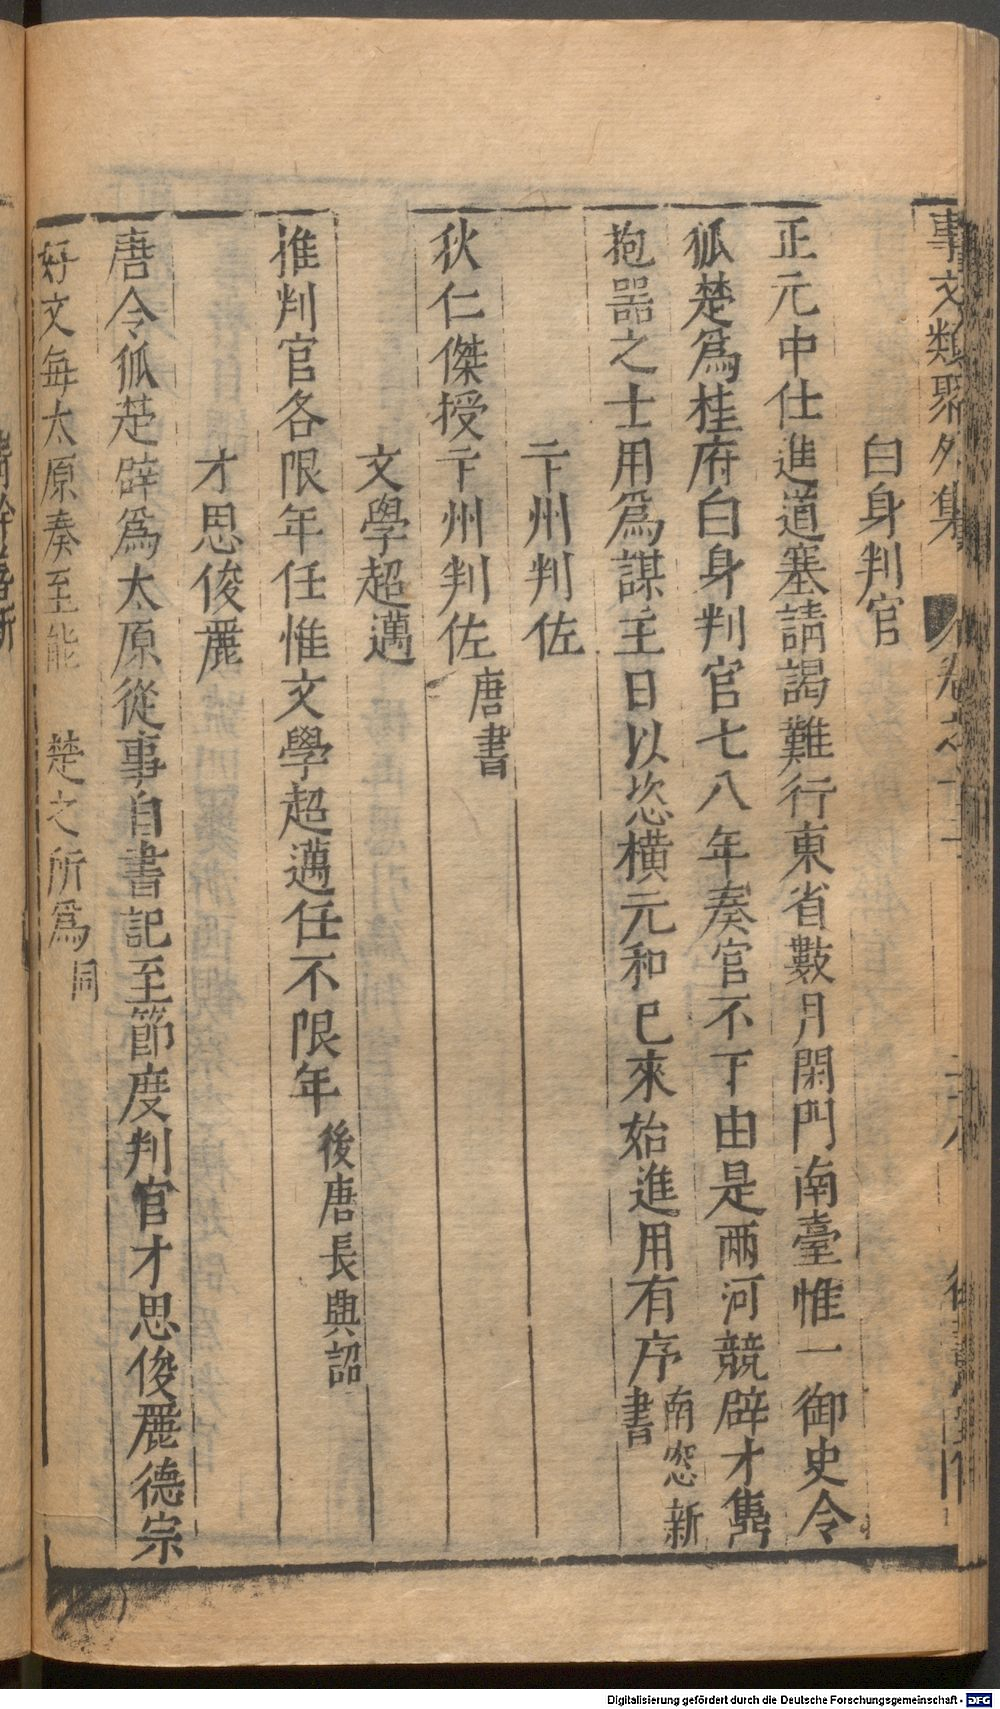 事文類聚外集 卷之十二
白身判官
正元中仕進道塞請謁難行東省數月閑門南臺惟一御史令
狐楚爲桂府白身判官七八年奏官不下由是兩河競辟才雋
抱器之士用爲謀主日以恣橫元和已來始進用有序南窓新書
卞州判佐
狄仁傑授卞州判佐唐書
文學超邁
推判官各限年任惟文學超邁任不限年後唐長興詔
才思俊麗
唐令狐楚辟爲太原從事自書記至節度判官才思俊麗德宗
好文每太原奏至能 楚之所爲同
Digitalisierung gefördert durch die Deutsche Forschungsgemeinschaft - DFG